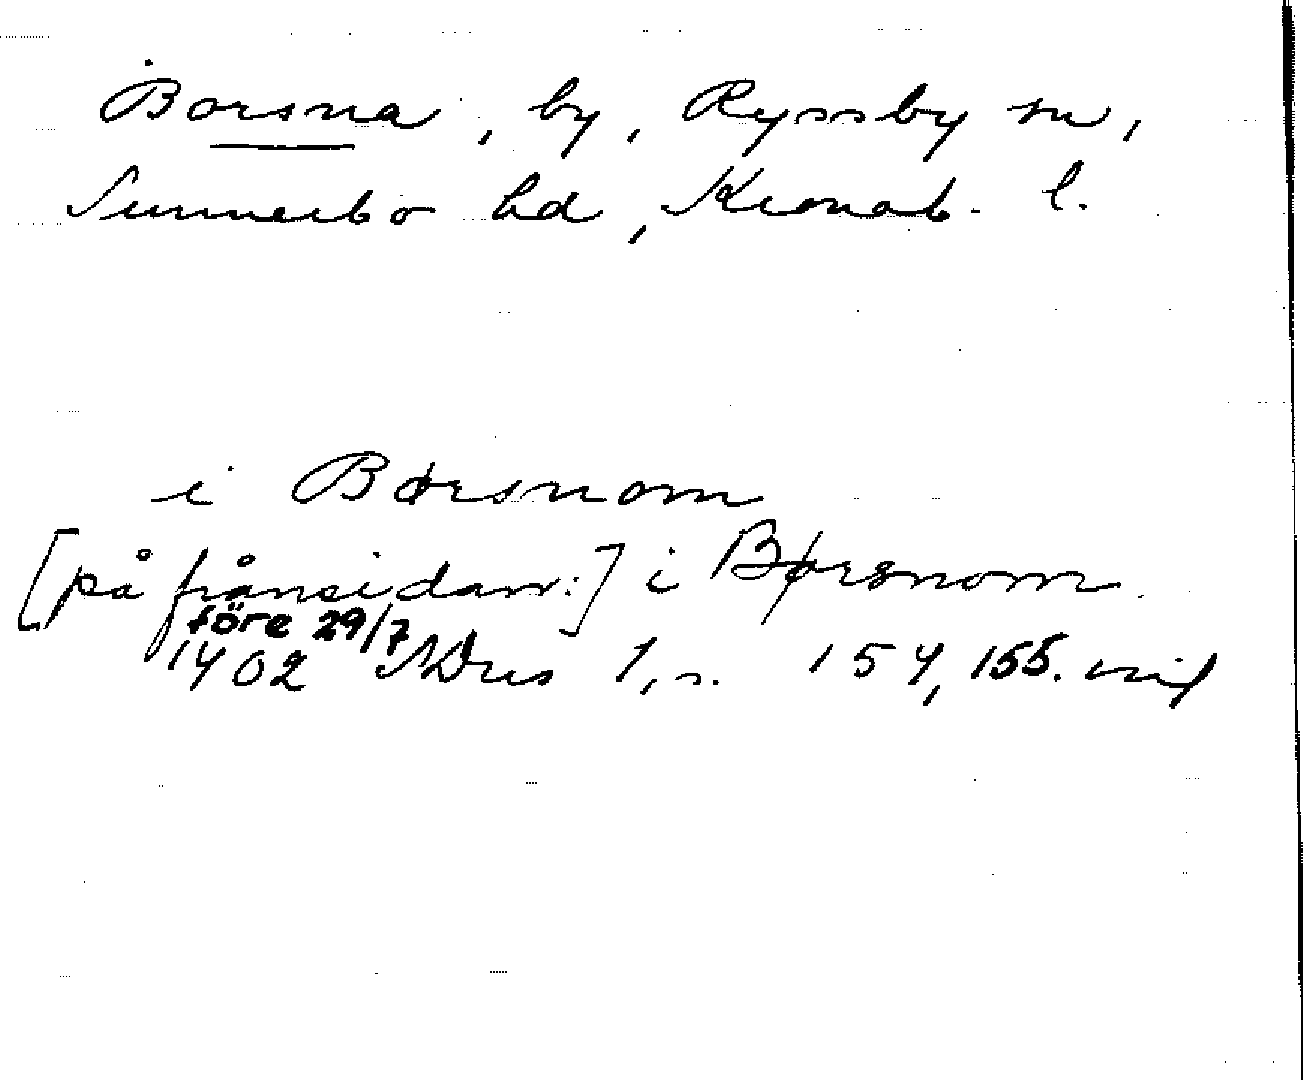 Borsna, by, Ryssby sn,
Sunnerbo hd, Kronob. l.
i Børsnom
[på frånsidan:] i Børsnom
före 29/7
1402 NDus 1, s. 154, 155. mif